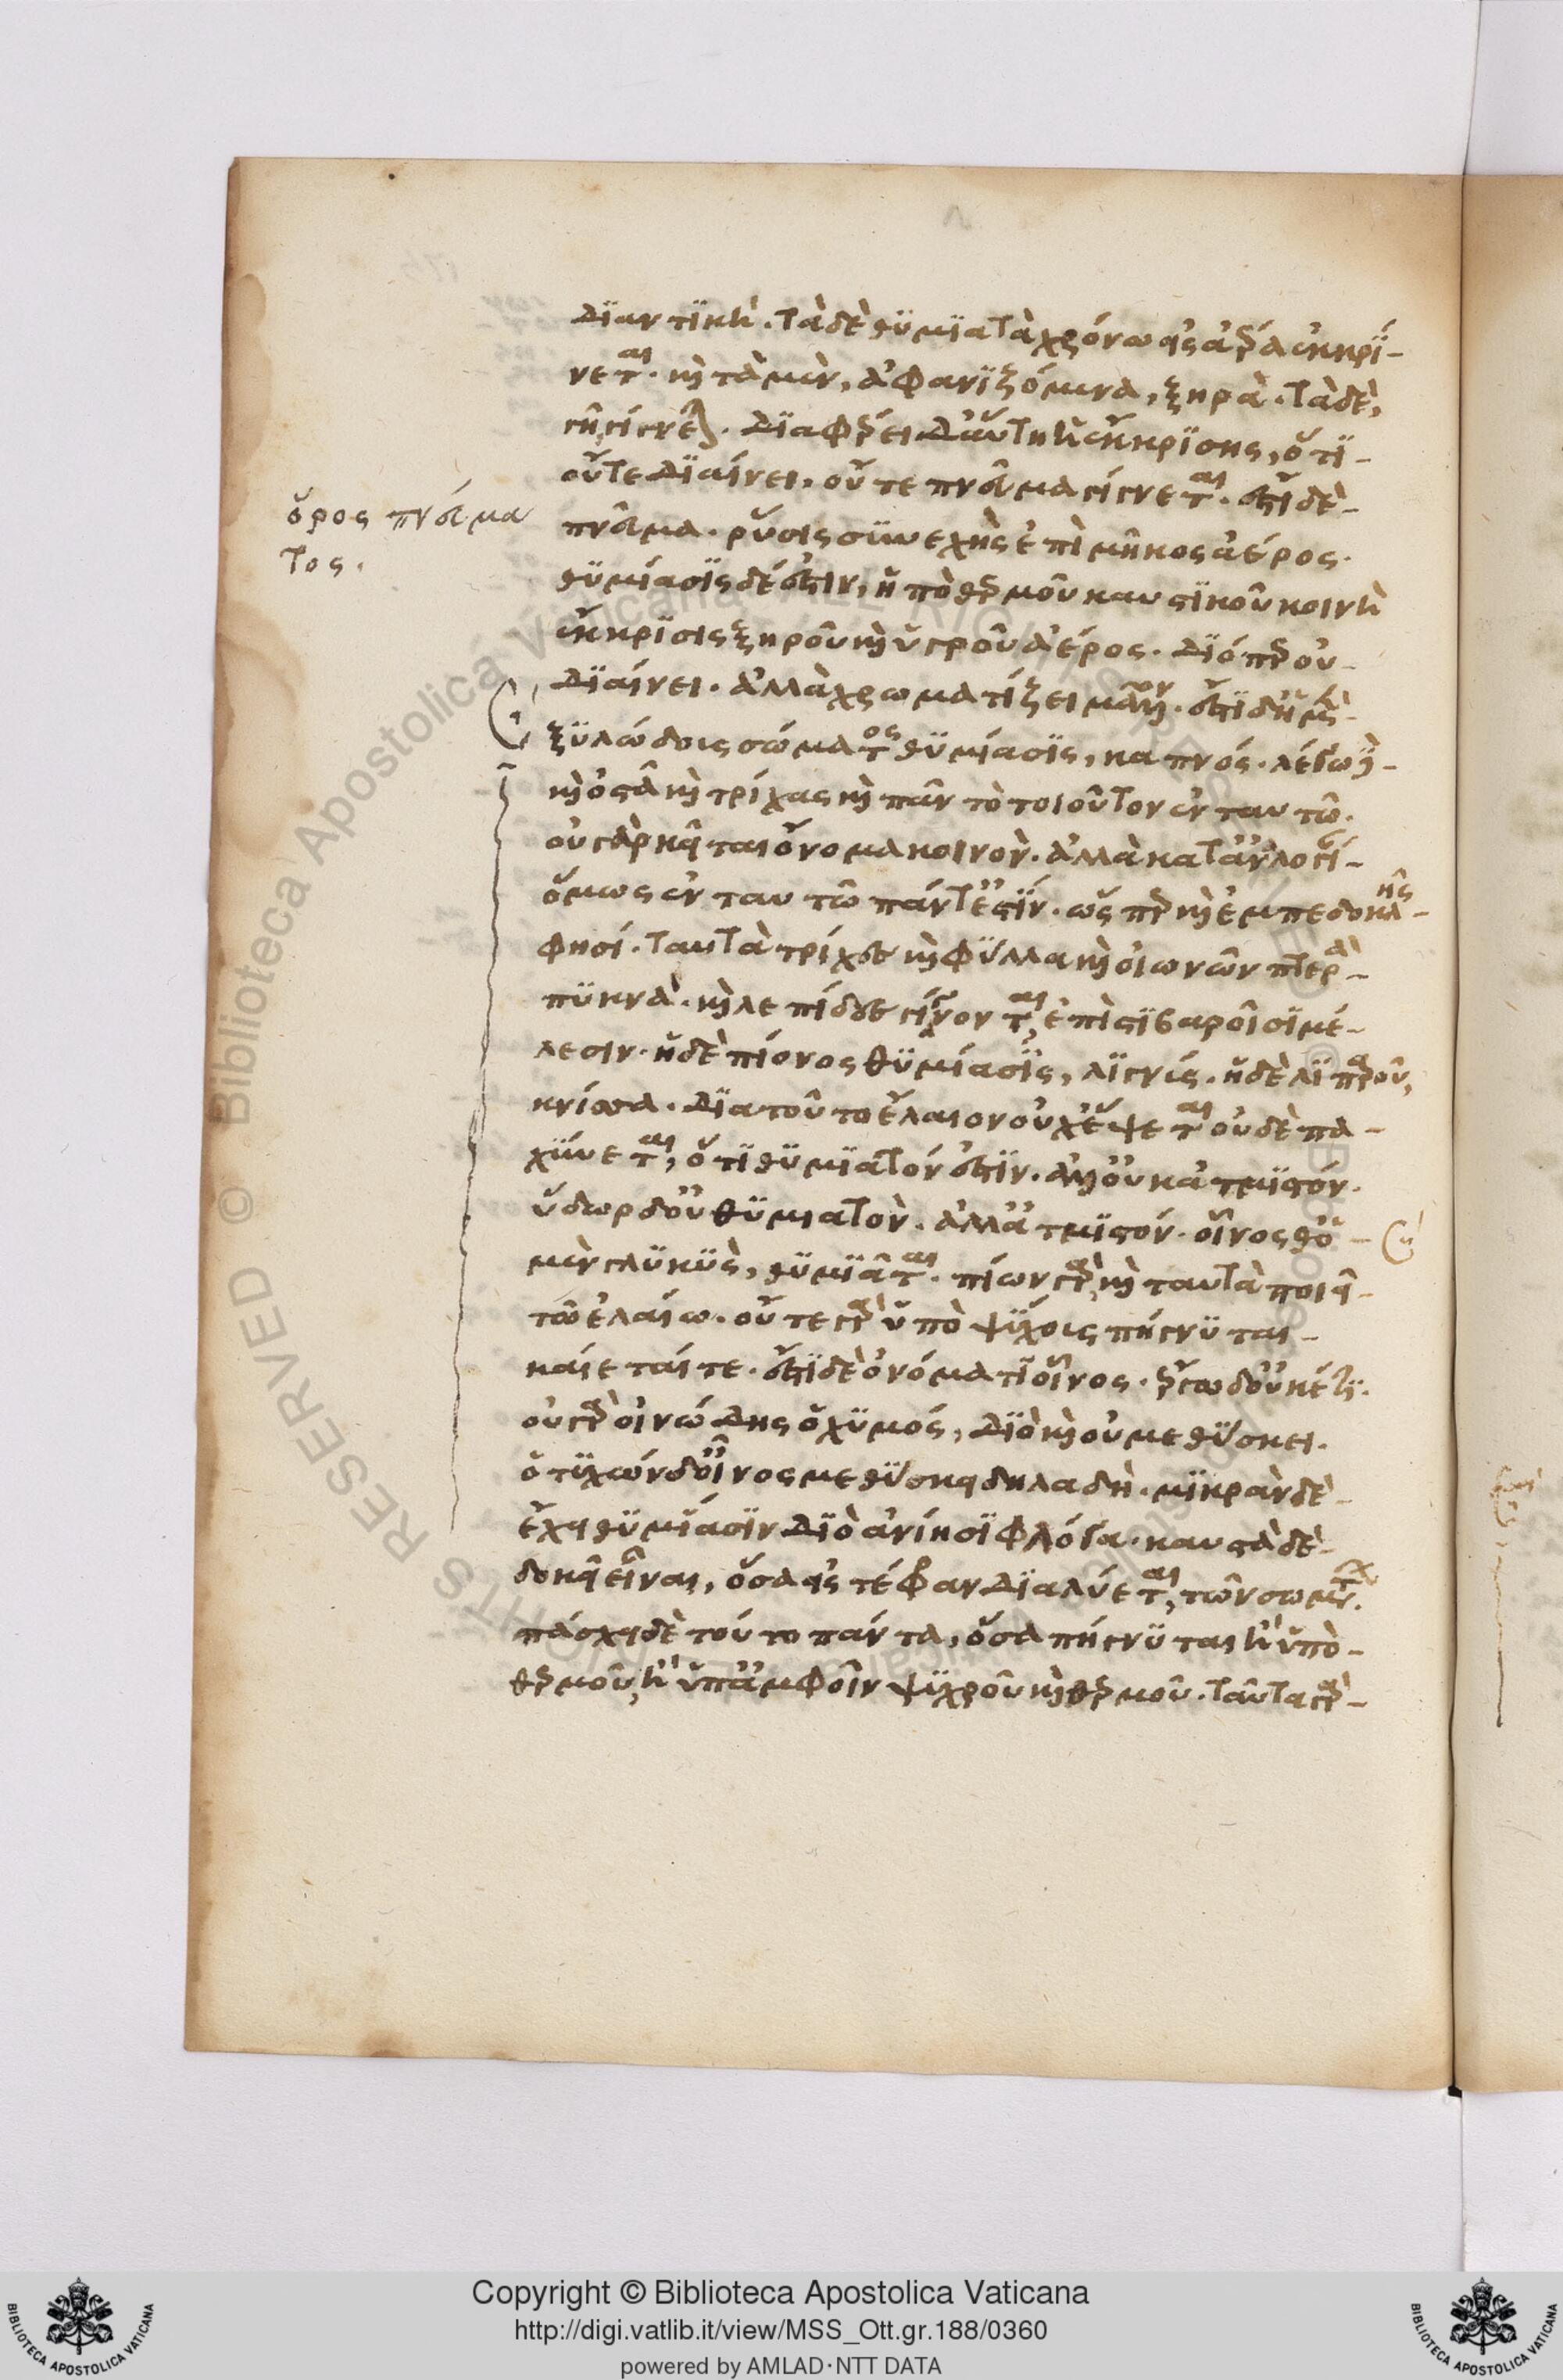 διαντικὴ. τὰ δὲ θυμιατὰ χρόνω εἰς ἀέρα ἐκκρί-
νεται. καὶ τὰ μὲν, ἀφανιζόμενα, ξηρὰ. τὰ δὲ,
γῆ γίγνεται. διαφέρει δ' αὕτη ἡ ἔκκρισις, ὅτι
οὔτε διαίνει, οὔτε πνεῦμα γίγνεται. ἔστι δὲ
ὅρος πνεύμα
τος.
πνεῦμα. ῥύσις συνεχὴς ἐπὶ μῆκος ἀέρος.
θυμίασις δέ ἐστιν, ἡ ὑπὸ θερμοῦ καυστικοῦ κοινὴ
ἔκκρισις ξηροῦ καὶ ὑγροῦ ἀέρος. διόπερ οὐ
διαίνει. ἀλλὰ χρωματίζει μᾶλλον. ἔστι δ' ἡ μὲν
ξυλώδους σώματος θυμίασις, καπνός. λέγω δὲ
καὶ ὀστᾶ καὶ τρίχας καὶ πᾶν τὸ τοιοῦτον ἐν ταυτῶ.
οὐ γὰρ κεῖται ὄνομα κοινὸν. ἀλλὰ κατ' ἀναλογίαν
ὅμως ἐν ταυτῶ πάντ' ἐστίν. ὥσπερ καὶ ἐμπεδοκλῆς
φησί. ταυτὰ τρίχες καὶ φύλλα καὶ οἰωνῶν πτερὰ
πυκνὰ. καὶ λεπίδες γίγνονται, ἐπὶ στιβαροῖσι μέ-
λεσιν. ἡ δὲ πίονος θυμίασις, λιγνύς. ἡ δὲ λιπαροῦ,
κνίσσα. διὰ τοῦτο ἔλαιον οὐχ ἕψεται οὐδὲ πα-
χύνεται, ὅτι θυμιατόν ἐστιν. ἀλλ' οὐκ ἀτμιστόν.
ὕδωρ δ' οὐ θυμιατὸν. ἀλλ' ἀτμιστόν. οἶνος δ' ὁ
μὲν γλυκὺς, θυμιᾶται. πίων γὰρ, καὶ ταυτὰ ποιεῖ
τῶ ἐλαίω. οὔτε γὰρ ὑπὸ ψύχους πήγνυται
καίεταί τε. ἔστι δὲ ὀνόματι οἶνος. ἔργω δ' οὐκ ἔστιν.
οὐ γὰρ οἰνώδης ὁ χυμός, διὸ καὶ οὐ μεθύσκει.
ὁ τυχὼν δ' οἶνος μεθύσκει δηλαδὴ. μικρὰν δὲ
ἔχει θυμίασιν διὸ ἀνίησι φλόγα. καυστὰ δὲ
δοκεῖ εἶναι, ὅσα εἰς τέφραν διαλύεται, τῶν σωμάτων.
πάσχει δὲ τοῦτο πάντα, ὅσα πήγνυται ἢ ὑπὸ
θερμοῦ, ἢ ὑπ' ἀμφοῖν ψυχροῦ καὶ θερμοῦ. ταῦτα γὰρ
Copyright © Biblioteca Apostolica Vaticana
http://digi.vatlib.it/view/MSS_Ott.gr.188/0360
powered by AMLAD·NTT DATA